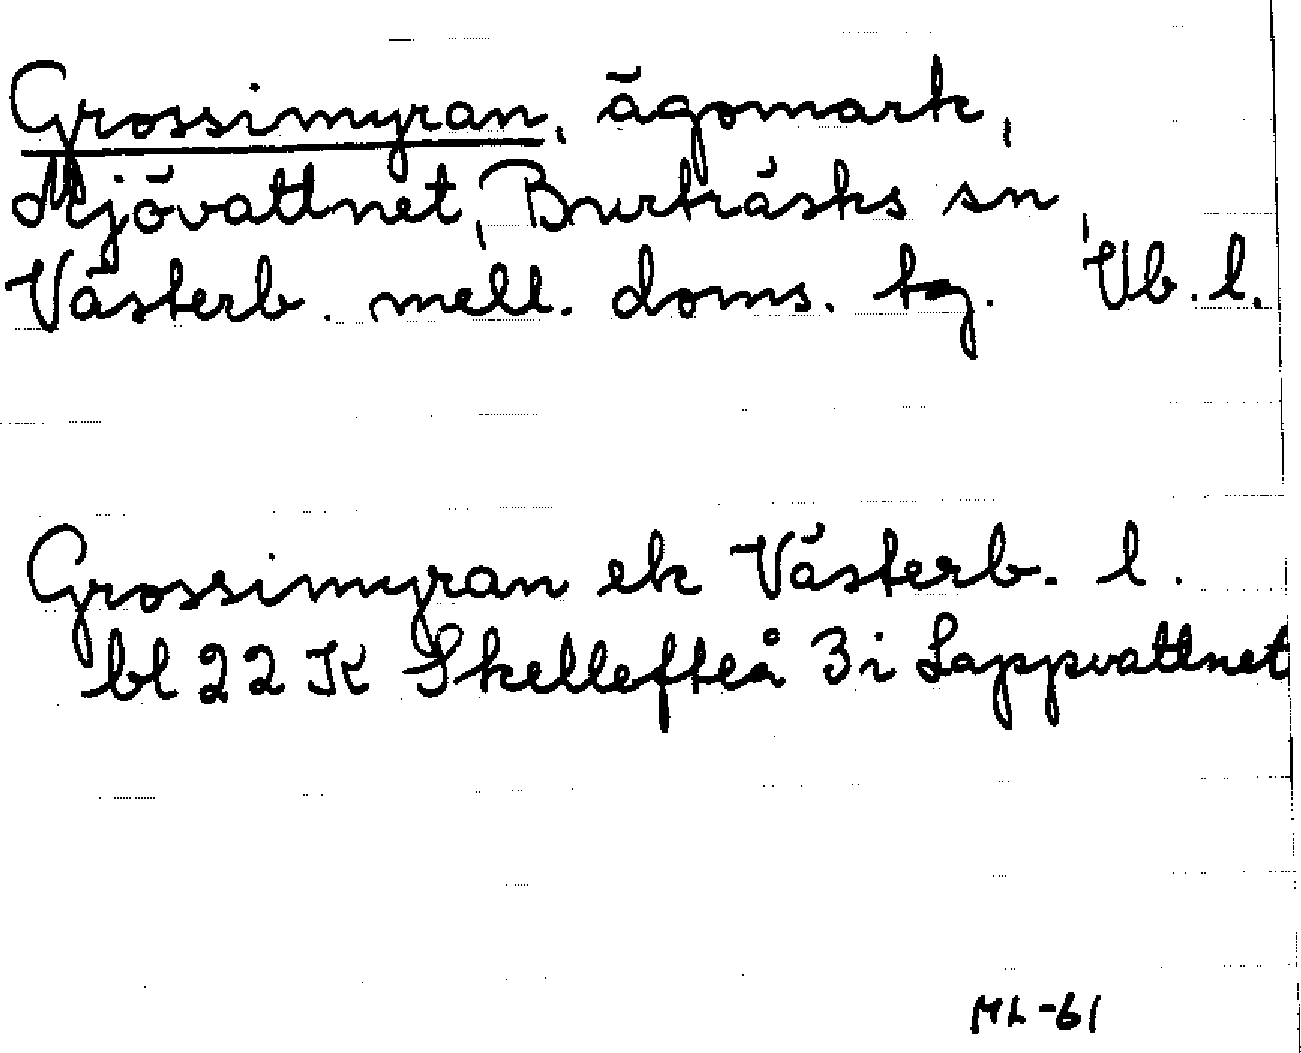 Grossimyran, ägomark,
Mjövattnet, Burträsks sn,
Västerb. mell. doms. tg. Vb. l.
Grossimyran ek Västerb. l.
bl 22 K Skellefteå 3 i Lappvattnet
ML-61